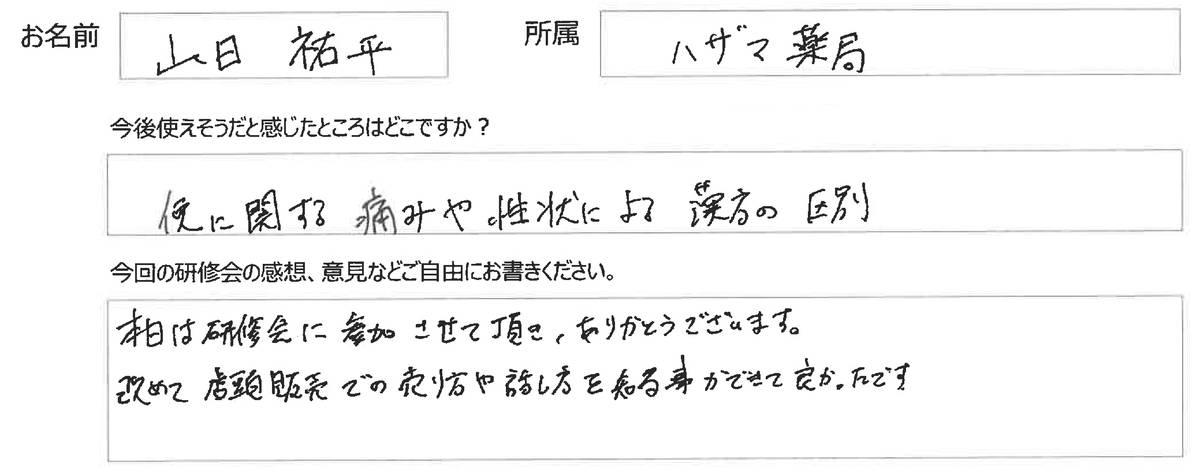 お名前 山日 祐平 所属 ハザマ薬局
今後使えそうだと感じたところはどこですか？
便に関する 痛みや 性状による 漢方の 区別
今回の研修会の感想、意見などご自由にお書きください。
本日は研修会に参加させて頂き、ありがとうございます。
改めて店頭販売での売り方や話し方を知る事ができて良かったです